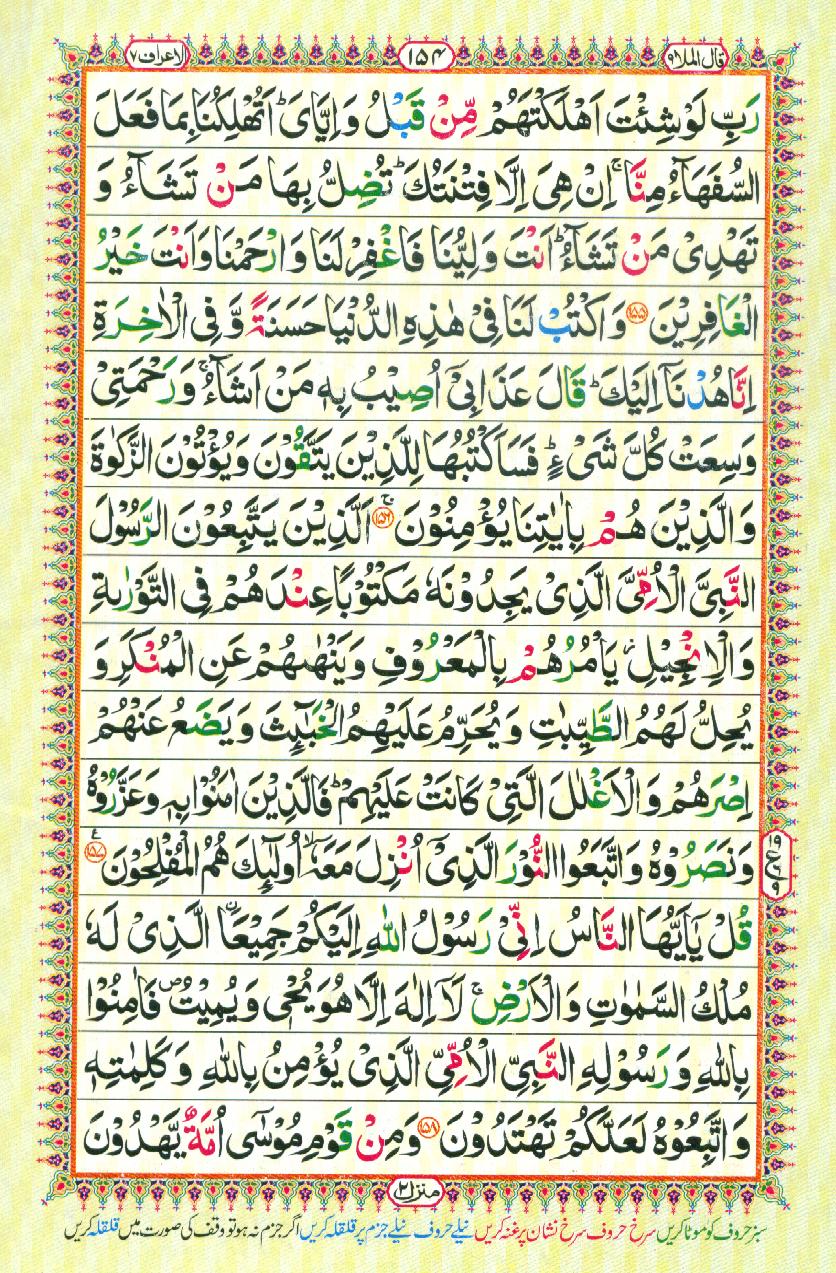 قال الملا۹
۱۵۴
الاعراف۷
رَبِّ لَوْ شِئْتَ اَهْلَكْتَهُمْ مِّنْ قَبْلُ وَاِیَّایَ ؕ اَتُهْلِكُنَا بِمَا فَعَلَ
السُّفَهَآءُ مِنَّا ۚ اِنْ هِیَ اِلَّا فِتْنَتُكَ ؕ تُضِلُّ بِهَا مَنْ تَشَآءُ وَ
تَهْدِیْ مَنْ تَشَآءُ ؕ اَنْتَ وَلِیُّنَا فَاغْفِرْ لَنَا وَارْحَمْنَا وَاَنْتَ خَیْرُ
الْغَافِرِیْنَ ﴿۱۵۵﴾ وَاكْتُبْ لَنَا فِیْ هٰذِهِ الدُّنْیَا حَسَنَةً وَّ فِی الْاٰخِرَةِ
اِنَّا هُدْنَاۤ اِلَیْكَ ؕ قَالَ عَذَابِیْۤ اُصِیْبُ بِهٖ مَنْ اَشَآءُ ۚ وَرَحْمَتِیْ
وَسِعَتْ كُلَّ شَیْءٍ ؕ فَسَاَكْتُبُهَا لِلَّذِیْنَ یَتَّقُوْنَ وَیُؤْتُوْنَ الزَّكٰوةَ
وَالَّذِیْنَ هُمْ بِاٰیٰتِنَا یُؤْمِنُوْنَ ﴿۱۵۶﴾ۚ اَلَّذِیْنَ یَتَّبِعُوْنَ الرَّسُوْلَ
النَّبِیَّ الْاُمِّیَّ الَّذِیْ یَجِدُوْنَهٗ مَكْتُوْبًا عِنْدَهُمْ فِی التَّوْرٰىةِ
وَالْاِنْجِیْلِ ؗ یَاْمُرُهُمْ بِالْمَعْرُوْفِ وَیَنْهٰىهُمْ عَنِ الْمُنْكَرِ وَ
یُحِلُّ لَهُمُ الطَّیِّبٰتِ وَیُحَرِّمُ عَلَیْهِمُ الْخَبٰٓىِٕثَ وَیَضَعُ عَنْهُمْ
اِصْرَهُمْ وَالْاَغْلٰلَ الَّتِیْ كَانَتْ عَلَیْهِمْ ؕ فَالَّذِیْنَ اٰمَنُوْا بِهٖ وَعَزَّرُوْهُ
وَنَصَرُوْهُ وَاتَّبَعُوا النُّوْرَ الَّذِیْۤ اُنْزِلَ مَعَهٗۤ ۙ اُولٰٓىِٕكَ هُمُ الْمُفْلِحُوْنَ ﴿۱۵۷﴾ ع
قُلْ یٰۤاَیُّهَا النَّاسُ اِنِّیْ رَسُوْلُ اللّٰهِ اِلَیْكُمْ جَمِیْعَا ۨالَّذِیْ لَهٗ
مُلْكُ السَّمٰوٰتِ وَالْاَرْضِ ۚ لَاۤ اِلٰهَ اِلَّا هُوَ یُحْیٖ وَیُمِیْتُ ۪ فَاٰمِنُوْا
بِاللّٰهِ وَرَسُوْلِهِ النَّبِیِّ الْاُمِّیِّ الَّذِیْ یُؤْمِنُ بِاللّٰهِ وَكَلِمٰتِهٖ
وَاتَّبِعُوْهُ لَعَلَّكُمْ تَهْتَدُوْنَ ﴿۱۵۸﴾ وَمِنْ قَوْمِ مُوْسٰۤی اُمَّةٌ یَّهْدُوْنَ
منزل۲
سبز حروف کو موٹا کریں سرخ حروف سرخ نشان پر غنہ کریں نیلے حروف نیلے جزم پر قلقلہ کریں اگر جزم نہ ہو تو وقف کی صورت میں قلقلہ کریں